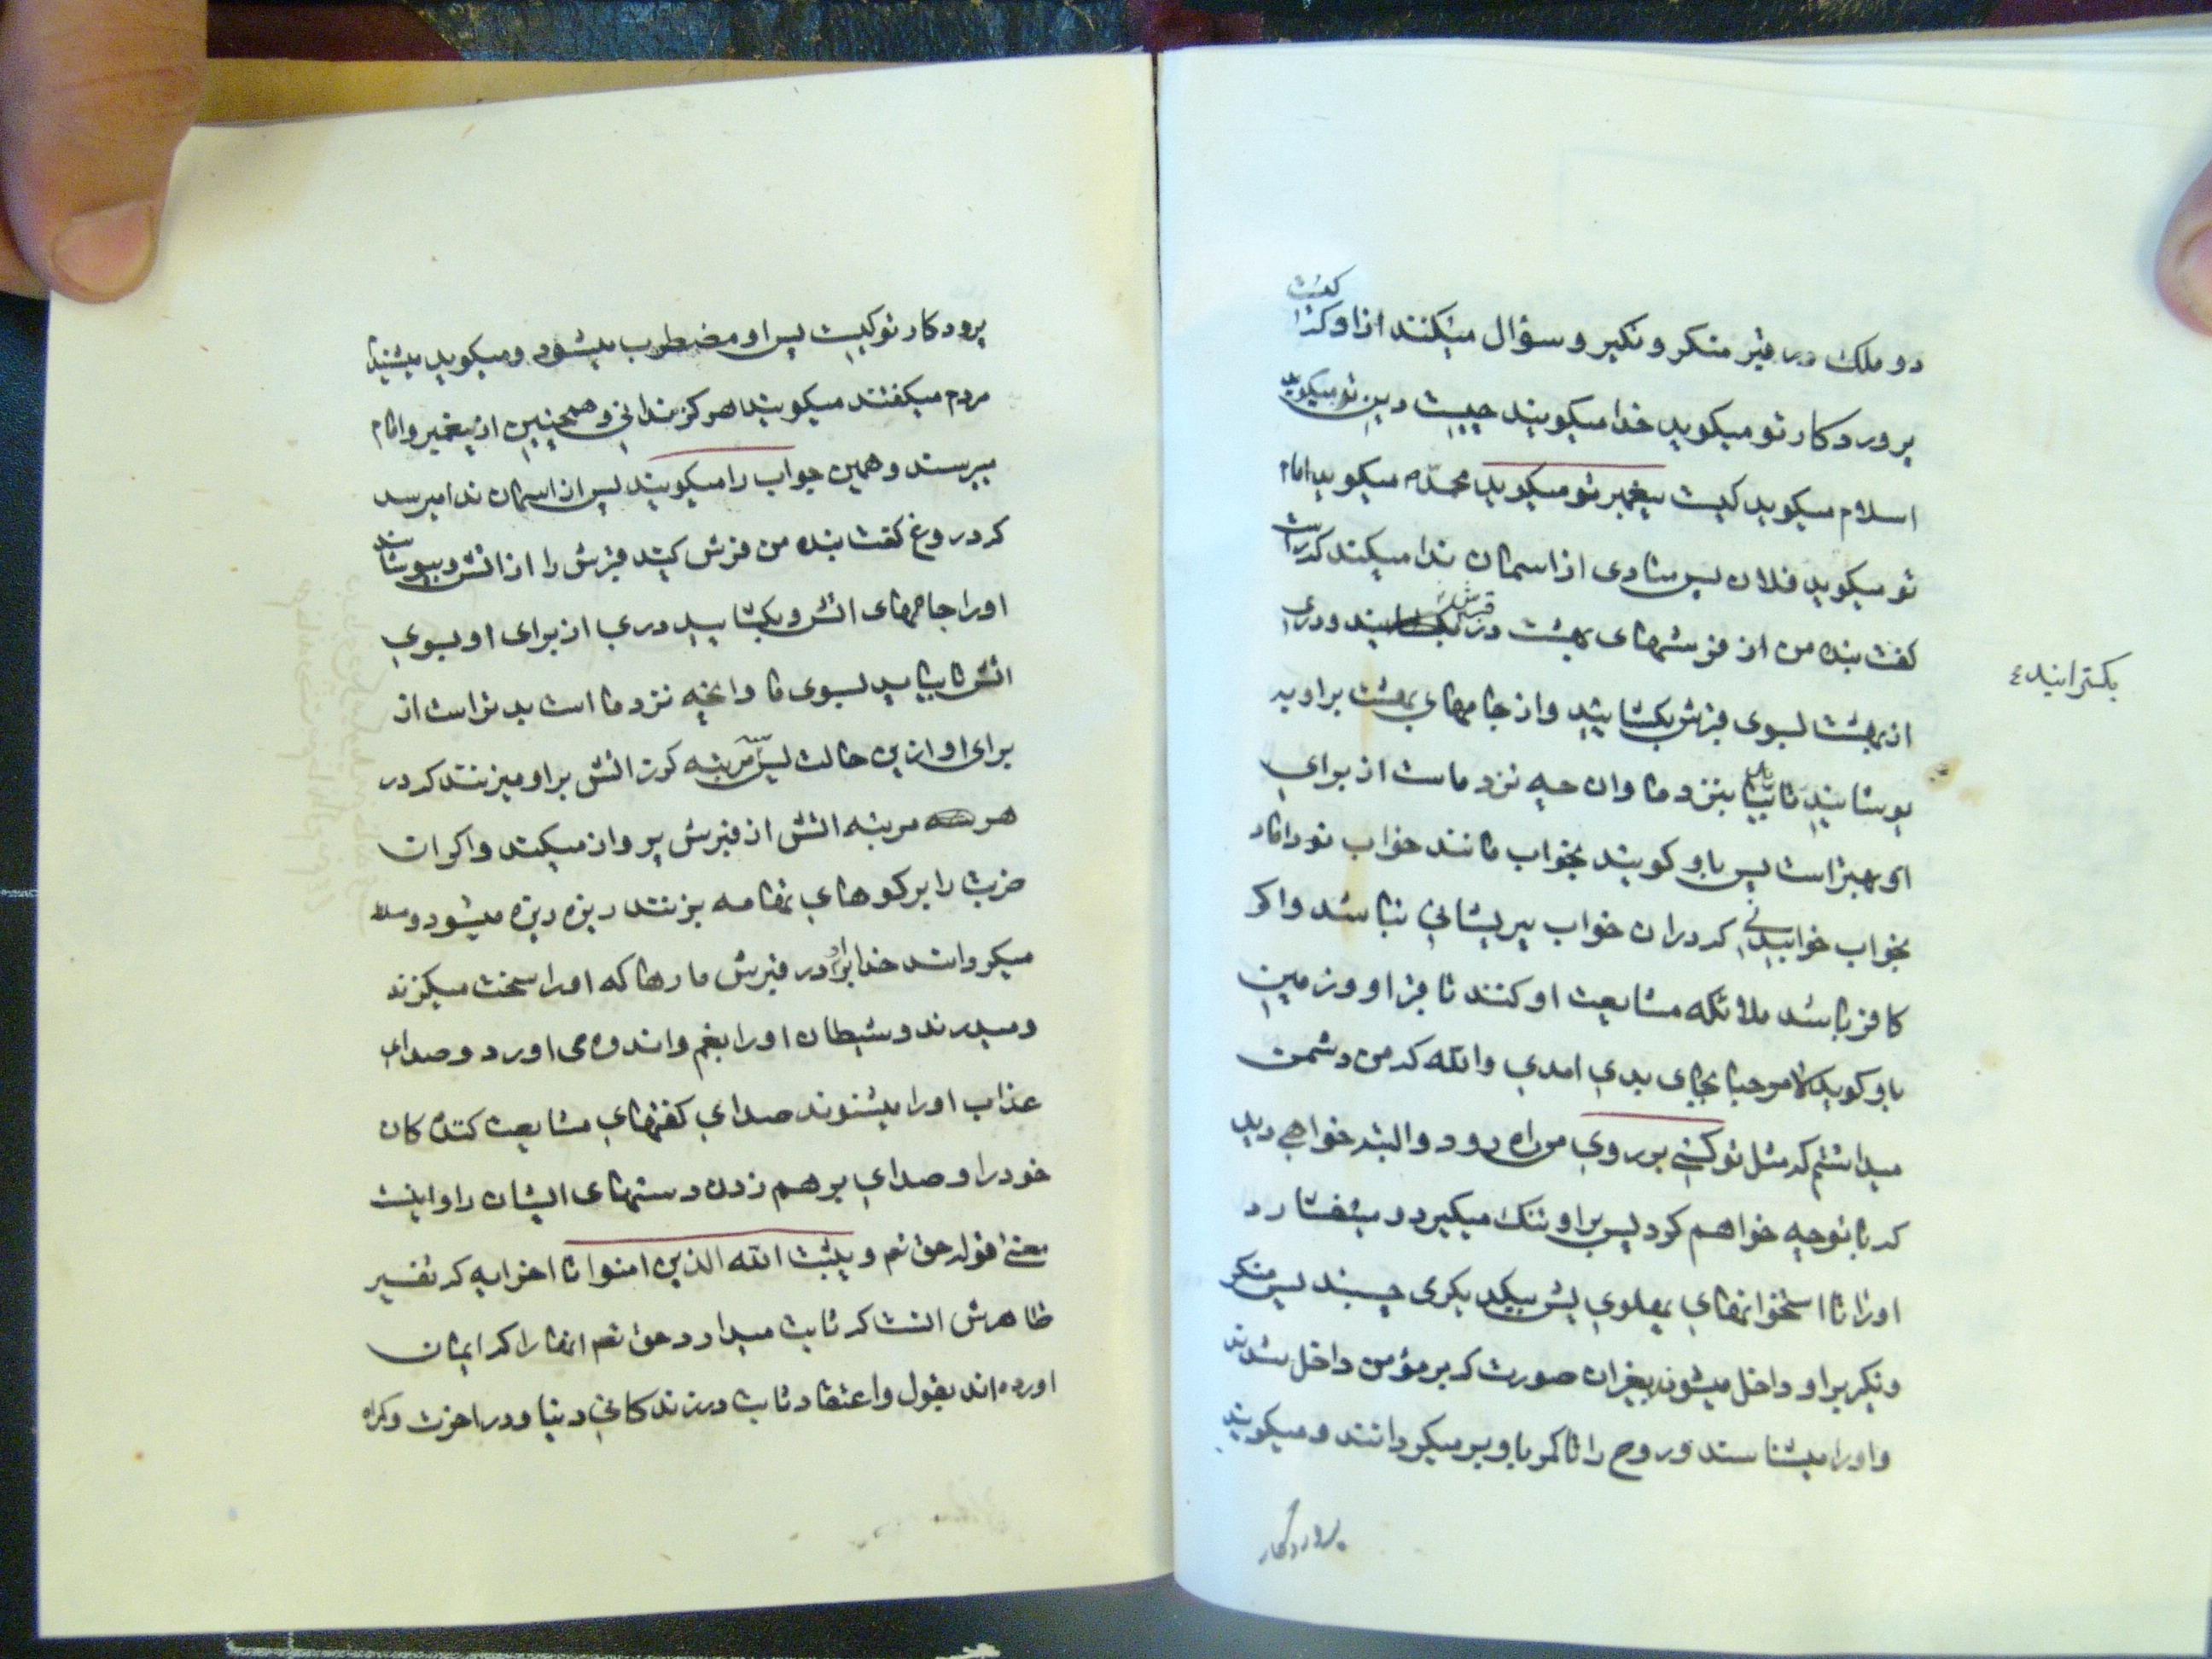 دو ملک در قبر منکر و نکیر و سؤال میکنند ازاو که کیست
پروردکار تو میکوید خدا میکویند چیست دین تو میکوید
اسلام میکوید کیست پیغمبر تو میکوید محمد میکوید امام
تو میکوید فلان پس منادی از اسمان ندا میکند که راست
کفت بنده من از فرشهای بهشت در قبرش و دری
بکسترانید
از بهشت بسوی قبرش بکشایید و از جامهای بهشت براو به
پوشانید تا بیاید بنزد ما وان چه نزد ماست از برای
او بهتراست پس باو کویند بخواب مانند خواب نو داماد
بخواب خوابیدنی که دران خواب پریشانی نباشد واکر
کافر باشد ملائکه مشایعت او کنند تا قبر او و زمین
باو کوید لا مرحبا بجای بدی امدی والله که من دشمن
میداشتم که مثل تو کسی بر روی من راه رود والبته خواهی دید
که با تو چه خواهم کرد پس براو تنک میکیرد و میفشارد
اورا تا استخوانهای پهلوی پس بیکدیکر می چسبند پس منکر
و نکیر براو داخل میشوند بغیران صورت که بر مؤمن داخل شدند
و اورا میشناسند و روح را تا کمر باو بر میکردانند و میکویند
پروردکار
پرودکار تو کیست پس او مضطرب میشود و میکوید میشنیدم
مردم میکفتند میکویند هرکز ندانی و همچنین از پیغمبر و امام
میپرسند و همین جواب را میکویند پس از اسمان ندا میرسد
که دروغ کفت بنده من فرش کنید قبرش را از اتش و بپوشانید
اورا جامهای اتش و بکشایید دری از برای او بسوی
اتش تا بیاید بسوی ما وانچه نزد ما است بدتر است از
برای او ازین حالت پس سه مرتبه کرز اتش براو میزنند که در
هر مرتبه اتش از قبرش پرواز میکند و اکر ان
ضربت را بر کوههای تهامه بزنند ریزه ریزه میشود و مسلط
میکرداند خدا براو در قبرش مارها که اورا سخت میکزند
و میدرند و شیطان اورا بغم و اندوه می اورد و صدای
عذاب اورا میشنوند صدای کفشهای مشایعت کنندکان
خود را و صدای برهم زدن دستهای ایشان را و اینست
معنی قول حق تعم و یثبت الله الذین امنوا تا اخر ایه که تفسیر
ظاهرش انست که ثابت میدارد حق تعم انها را که ایمان
اورده اند بقول و اعتقاد ثابت در زندکانی دنیا و در اخرت و کمراه